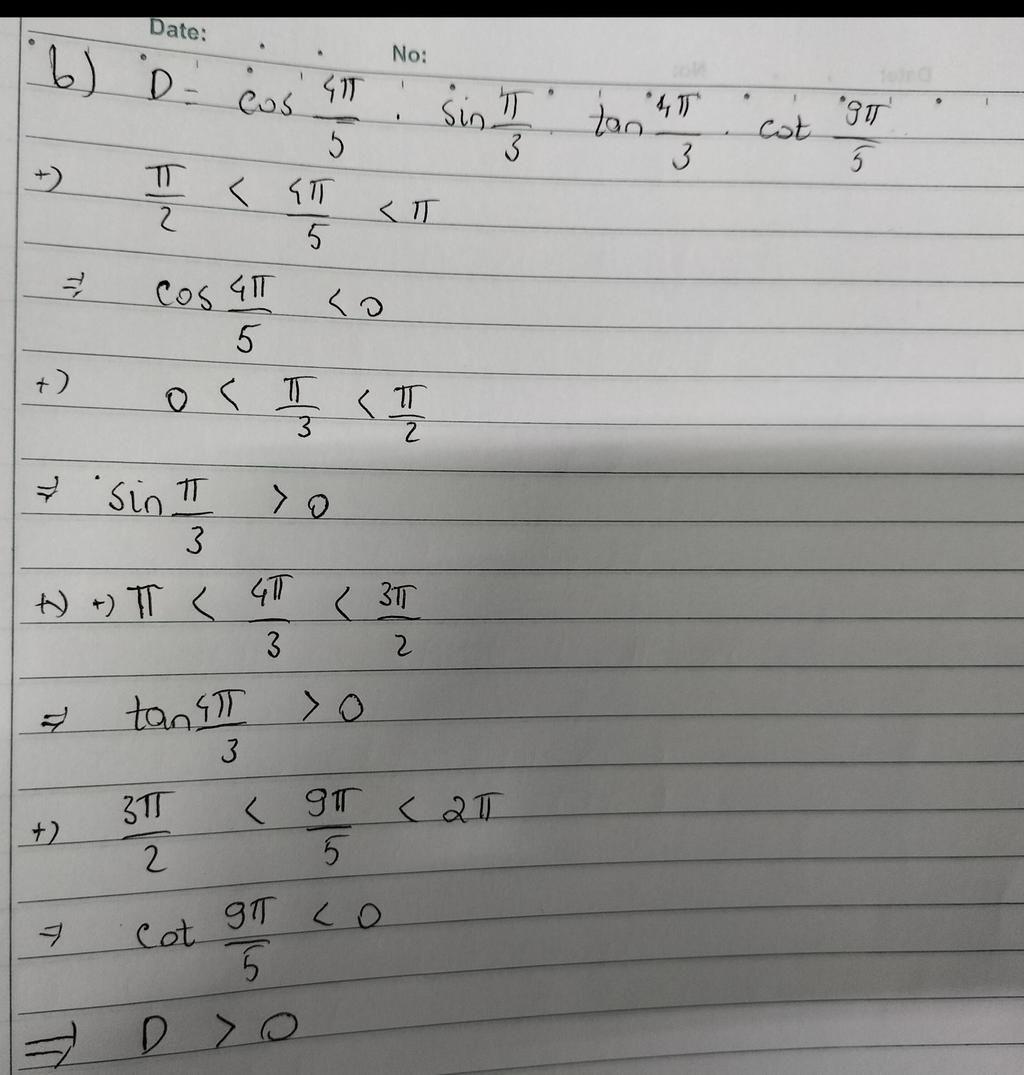 Date:
No:
b) D = cos 4π/5 . sin π/3 . tan 4π/3 . cot 9π/5
+) π/2 < 4π/5 < π
⇒ cos 4π/5 < 0
+) 0 < π/3 < π/2
⇒ sin π/3 > 0
+) +) π < 4π/3 < 3π/2
⇒ tan 4π/3 > 0
+) 3π/2 < 9π/5 < 2π
⇒ cot 9π/5 < 0
⇒ D > 0